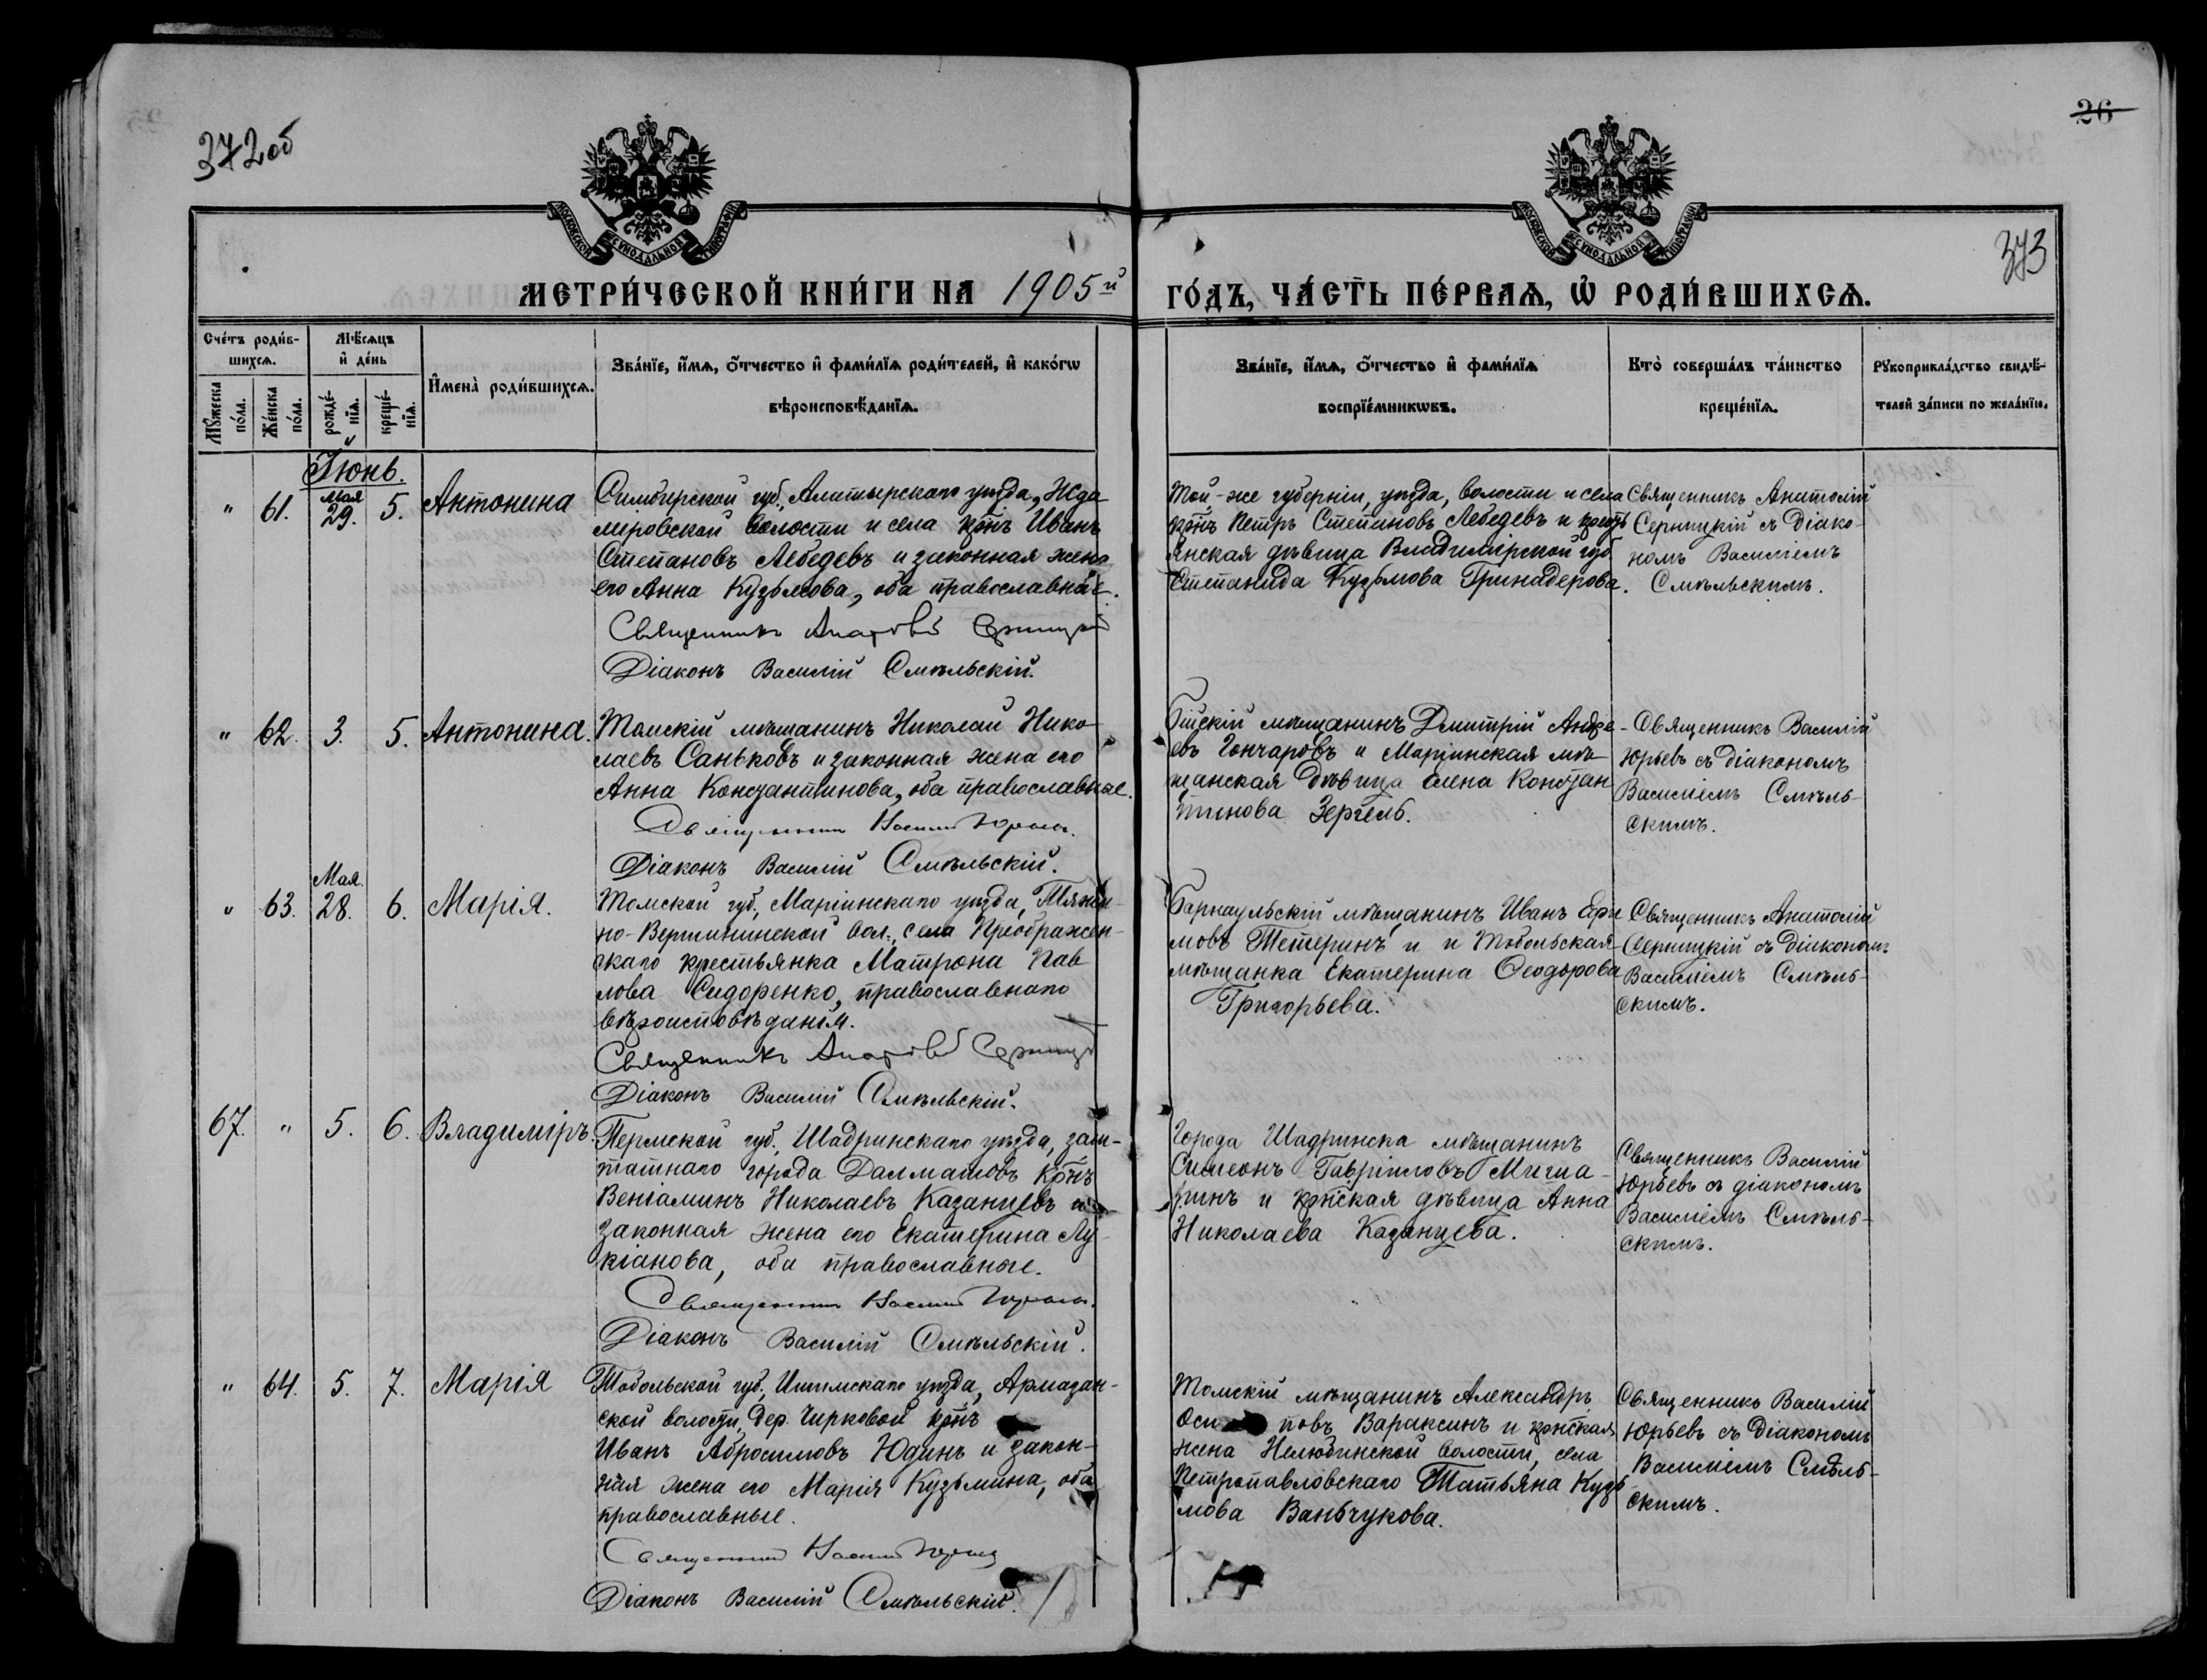 372об
26
373
МОСКОВСКОЙ СѴНОДАЛЬНОЙ ТИПОГРАФІИ
МОСКОВСКОЙ СѴНОДАЛЬНОЙ ТИПОГРАФІИ
МЕТРИ́ЧЕСКОЙ КНИ́ГИ НА 1905й
ГО́ДЪ, ЧА́СТЬ ПЕ́РВАѦ, Ѽ РОДИ́ВШИХСѦ.
Сче́тъ роди́в-
шихсѧ.
Мꙋ́жеска по́ла.
Же́нска по́ла.
Мѣ́сѧцъ
и҆ де́нь
рожде́-
нїѧ.
креще́-
нїѧ.
И҆мена̀ роди́вшихсѧ.
Зва́нїе, и҆́мѧ, ѻ҆́тчество и҆ фами́лїѧ роди́телей, и҆ како́гѡ
вѣроисповѣ́данїѧ.
Зва́нїе, и҆́мѧ, ѻ҆́тчество и҆ фами́лїѧ
воспрїе́мникѡвъ.
Кто̀ соверша́лъ та́инство
креще́нїѧ.
Рꙋкоприкла́дство свидѣ́-
телей за́писи по жела́нїю.
Іюнь.
" 61. Мая 29. 5. Антонина
Симбирской губ., Алатырскаго уѣзда, Жда
мировской волости и села кр̃нъ Иванъ
Степановъ Лебедевъ и законная жена
его Анна Кузьмова, оба православные.
Священникъ Анатолій Серницкій
Діаконъ Василій Смѣльскій.
Той-же губерніи, уѣзда, волости и села
кр̃нъ Петръ Степановъ Лебедевъ и кресть
янская дѣвица Владимірской губ.
Степанида Кузьмова Гринадерова.
Священникъ Анатолій
Серницкій съ діако-
номъ Василіемъ
Смѣльскимъ.
" 62. 3. 5. Антонина.
Томскій мѣщанинъ Николай Нико
лаевъ Саньковъ и законная жена его
Анна Константинова, оба православные.
Священникъ Василій Юрьевъ.
Діаконъ Василій Смѣльскій.
Бійскій мѣщанинъ Дмитрій Андре
евъ Гончаровъ и Маріинская мѣ-
щанская дѣвица Елена Констан
тинова Зергель.
Священникъ Василій
Юрьевъ съ діакономъ
Василіемъ Смѣль-
скимъ.
" 63. Мая. 28. 6. Марія.
Томской губ., Маріинскаго уѣзда, Тяжи-
но-Вершининской вол., села Преображен-
скаго крестьянка Матрона Пав
лова Сидоренко, православнаго
вѣроисповѣданія.
Священникъ Анатолій Серницкій
Діаконъ Василій Смѣльскій.
Барнаульскій мѣщанинъ Иванъ Ефи
мовъ Тетеринъ и и Тобольская
мѣщанка Екатерина Ѳеодорова
Григорьева.
Священникъ Анатолій
Серницкій съ діакономъ
Василіемъ Смѣль-
скимъ.
67. " 5. 6. Владиміръ.
Пермской губ., Шадринскаго уѣзда, заш-
татнаго города Далматовъ кр̃нъ
Веніаминъ Николаевъ Казанцевъ и
законная жена его Екатерина Лу-
кіанова, оба православные.
Священникъ Василій Юрьевъ.
Діаконъ Василій Смѣльскій.
Города Шадринска мѣщанинъ
Симеонъ Гавріиловъ Миша-
ринъ и кр̃нская дѣвица Анна
Николаева Казанцева.
Священникъ Василій
Юрьевъ съ діакономъ
Василіемъ Смѣль-
скимъ.
" 64. 5. 7. Марія
Тобольской губ., Ишимскаго уѣзда, Армазан-
ской волости, дер. Чирковой кр̃нъ
Иванъ Абросимовъ Юдинъ и закон-
ная жена его Марія Кузьмина, оба
православные.
Священникъ Василій Юрьевъ
Діаконъ Василій Смѣльскій.
Томскій мѣщанинъ Александръ
Оси повъ Вараксинъ и кр̃нская
жена Нелюбинской волости, села
Петропавловскаго Татьяна Кузь
мова Ваньчукова.
Священникъ Василій
Юрьевъ съ діакономъ
Василіемъ Смѣль-
скимъ.